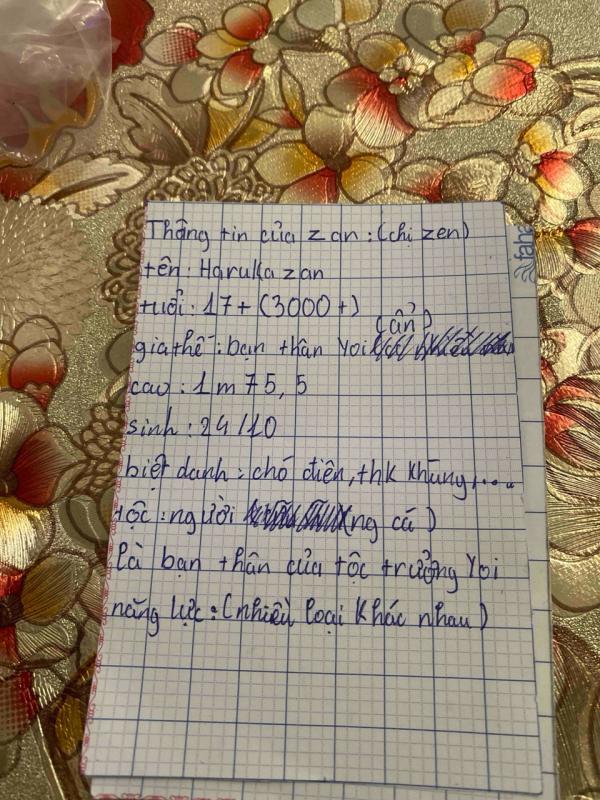 Thông tin của zan: (chị zen)
tên: Haruka zan
tuổi: 17+ (3000+)
(ẩn)
gia thế: bạn thân Yoi
cao: 1m75,5
sinh: 24/10
biệt danh: chó điên, thk khùng....
tộc: người (ng cá)
là bạn thân của tộc trưởng Yoi
năng lực: (nhiều loại khác nhau)
faha